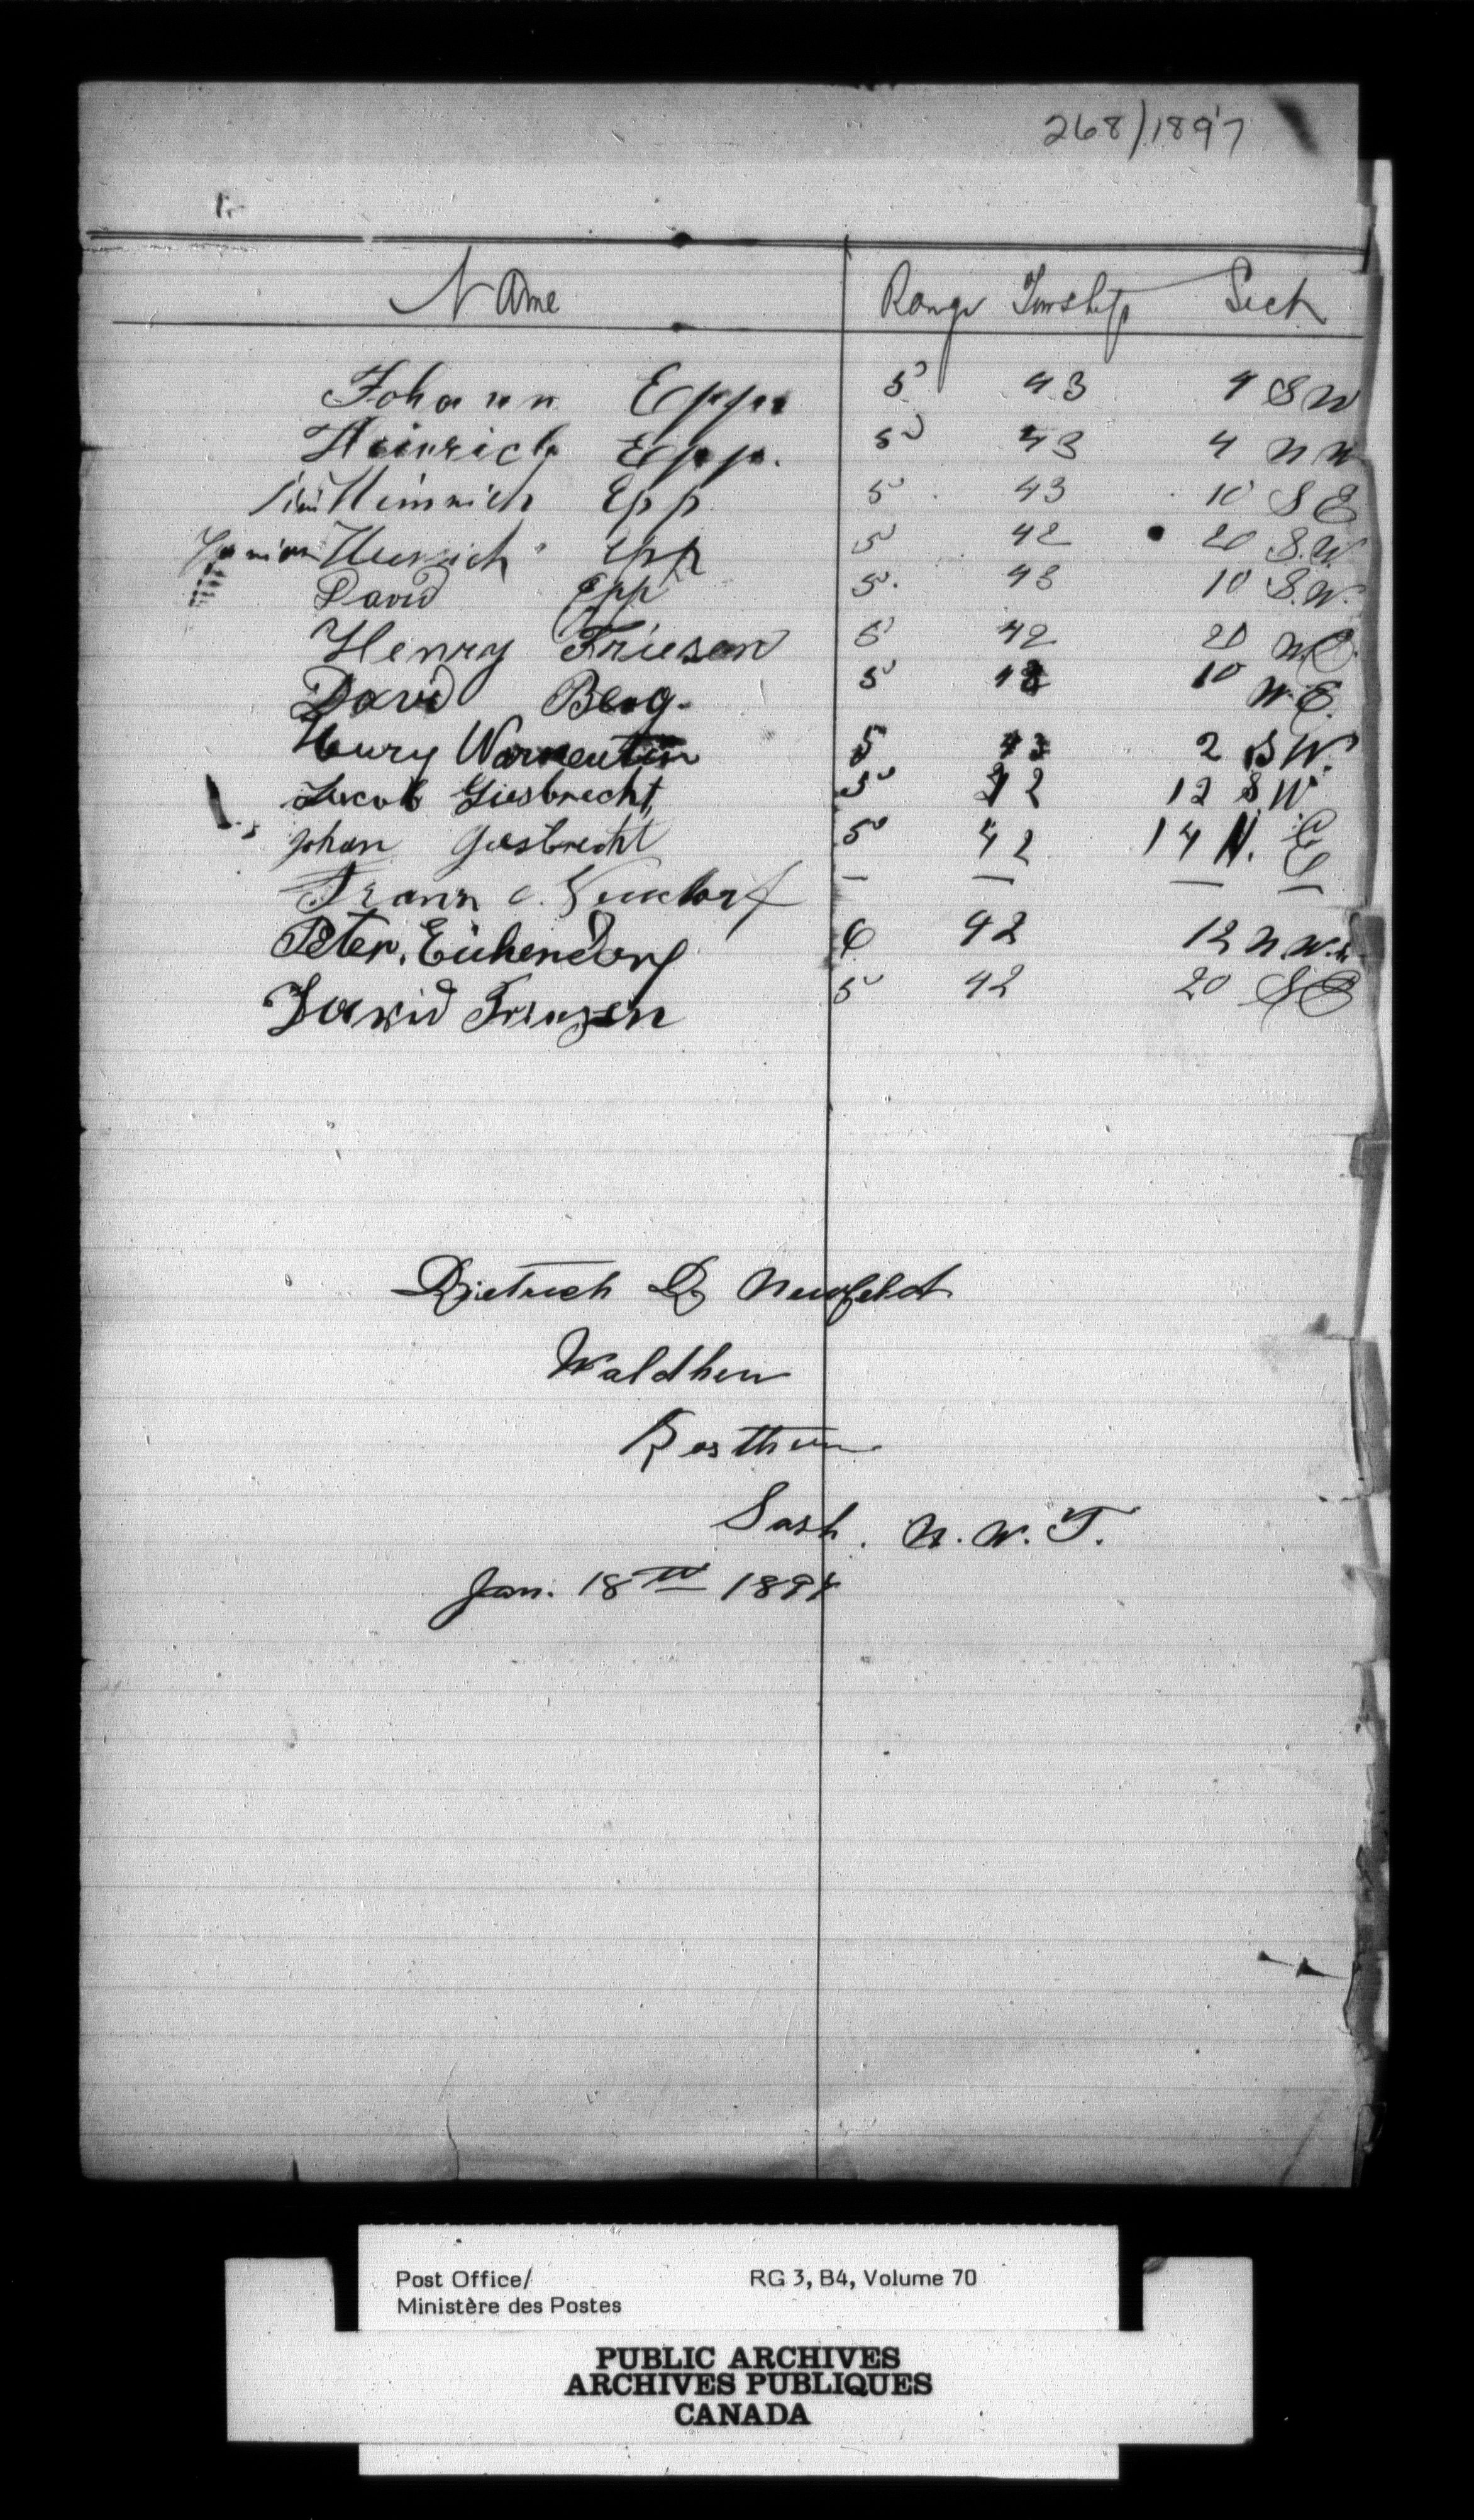 268/1897
Name Range Township Sect
Johann Epp. 5 43 4 S W
Heinrich Epp. 5 43 4 N W
Heinrich Epp 5 43 10 S E
Junior Heinrich Epp 5 42 20 S.W.
David Epp 5. 43 10 S.W.
Henry Friesen 5 42 20 N.E.
David Berg. 5 43 10 N.E.
Henry Warkentin 5 43 2 S W.
Jacob Giesbrecht 5 42 12 S.W
Johan Giesbrecht 5 42 14 N. E
Franz — — — —
Peter. Eichendorf 6 42 12 N W.
David Franzen 5 42 20 S E
Dietrich D Neufeldt
Waldheim
Rosthern
Sask. N. W. T.
Jan. 18th 1897
Post Office/ RG 3, B4, Volume 70
Ministère des Postes
PUBLIC ARCHIVES
ARCHIVES PUBLIQUES
CANADA